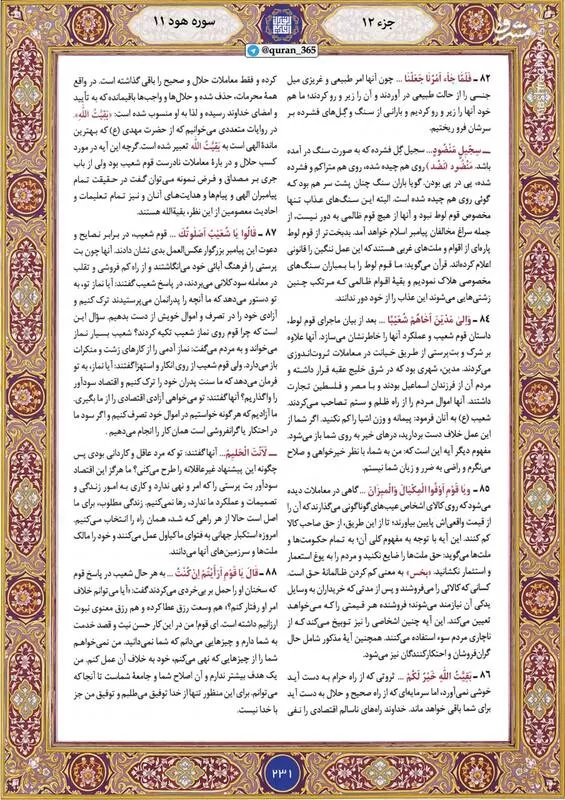 سوره هود ۱۱
جزء ۱۲
@quran_365
مشرق
۸۲ ـ فَلَمَّا جٰاءَ أَمْرُنٰا جَعَلْنٰا ... چون آنها امر طبیعی و غریزی میل
جنسی را از حالت طبیعی در آوردند و آن را زیر و رو کردند؛ ما هم
خود آنها را زیر و رو کردیم و بارانی از سنگ و گِل‌های فشرده بر
سرشان فرو ریختیم.
ـــ سِجّیلٍ مَنْضُودٍ... سجیل گِل فشرده که به صورت سنگ در آمده
باشد. مَنْضُود (نَضْد) روی هم چیده شده، روی هم متراکم و فشرده
شده، پی در پی بودن. گویا باران سنگ چنان پشت سر هم بود که
گوئی روی هم چیده شده است. البته این سنگ‌های عذاب تنها
مخصوص قوم لوط نبود و آنها از هیچ قوم ظالمی به دور نیست، از
جمله سراغ مخالفان پیامبر اسلام خواهد آمد. بدبخت‌تر از قوم لوط
پاره‌ای از اقوام و ملت‌های غربی هستند که این عمل ننگین را قانونی
اعلام کرده‌اند. قرآن می‌گوید: ما قوم لوط را با بمباران سنگ‌های
مخصوصی هلاک نمودیم و بقیهٔ اقوام ظالمی که مرتکب چنین
زشتی‌هایی می‌شوند این عذاب را از خود دور ندانند.
۸۴ ـ وَاِلیٰ مَدْیَنَ أَخٰاهُمْ شُعَیْبًا ... بعد از بیان ماجرای قوم لوط،
داستان قوم شعیب و عملکرد آنها را خاطرنشان می‌سازد. آنها علاوه
بر شرک و بت‌پرستی از طریق خیانت در معاملات ثروت‌اندوزی
می‌کردند. مدین، شهری بود که در شرق خلیج عقبه قرار داشته و
مردم آن از فرزندان اسماعیل بودند و با مصر و فلسطین تجارت
داشتند. آنها اموال مردم را از راه ظلم و ستم تصاحب می‌کردند.
شعیب (ع) به آنان فرمود: پیمانه و وزن اشیا را کم نکنید. اگر شما از
این عمل خلاف دست بردارید، درهای خیر به روی شما باز می‌شود.
مفهوم دیگر آیه این است که: من به شما، با نظر خیرخواهی و صلاح
می‌نگرم و راضی به ضرر و زیان شما نیستم.
۸۵ ـ وَیٰا قَوْمِ اَوْفُوا الْمِکْیٰالَ وَالْمیزٰانَ ... گاهی در معاملات دیده
می‌شود که روی کالای اشخاص عیب‌های گوناگونی می‌گذارند که آن را
از قیمت واقعی‌اش پایین بیاورند؛ تا از این طریق، از حق صاحب کالا
کم کنند. این آیه با توجه به مفهوم کلی آن؛ به تمام حکومت‌ها و
ملت‌ها می‌گوید: حق ملت‌ها را ضایع نکنید و مردم را به یوغ استعمار
و استثمار نکشانید. «بخس» به معنی کم کردن ظالمانهٔ حق است.
کسانی که کالائی را می‌فروشند و پس از مدتی که خریداران به وسایل
یدکی آن نیازمند می‌شوند؛ فروشنده هر قیمتی را که می‌خواهد
تعیین می‌کند. این آیه چنین اشخاصی را نیز توبیخ می‌کند که از
ناچاری مردم سوء استفاده می‌کنند. همچنین آیهٔ مذکور شامل حال
گران‌فروشان و احتکارکنندگان نیز می‌شود.
۸۶ ـ بَقِیَّتُ اللّٰهِ خَیْرٌ لَکُمْ... ثروتی که از راه حرام به دست آید
خوشی نمی‌آورد، اما سرمایه‌ای که از راه صحیح و حلال به دست آید
برای شما باقی خواهد ماند. خداوند راه‌های ناسالم اقتصادی را نفی
کرده و فقط معاملات حلال و صحیح را باقی گذاشته است. در واقع
همهٔ محرمات، حذف شده و حلال‌ها و واجب‌ها باقیمانده که به تأیید
و امضای خداوند رسیده و لذا به او منسوب شده است: «بَقِیَّتُ اللّٰهِ».
در روایات متعددی می‌خوانیم که از حضرت مهدی (ع) که بهترین
ماندهٔ الهی است به بَقِیَّتُ اللّٰه تعبیر شده است. گرچه این آیه در مورد
کسب حلال و در بارهٔ معاملات نادرست قوم شعیب بود ولی از باب
جری بر مصداق و فرض نمونه می‌توان گفت در حقیقت تمام
پیامبران الهی و پیام‌ها و هدایت‌های آنان و نیز تمام تعلیمات و
احادیث معصومین از این نظر، بقیةالله هستند.
۸۷ ـ قٰالُوا یٰا شُعَیْبُ أَصَلٰوتُکَ ... قوم شعیب، در برابر نصایح و
دعوت این پیامبر بزرگوار عکس‌العمل بدی نشان دادند. آنها چون بت
پرستی را فرهنگ آبائی خود می‌انگاشتند و از راه کم فروشی و تقلب
در معامله سود کلانی می‌بردند، در پاسخ شعیب گفتند: آیا نماز تو، به
تو دستور می‌دهد که ما آنچه را پدرانمان می‌پرستیدند ترک کنیم و
آزادی خود را در تصرف و اموال خویش از دست بدهیم. سؤال این
است که چرا قوم روی نماز شعیب تکیه کردند؟ شعیب بسیار نماز
می‌خواند و به مردم می‌گفت: نماز آدمی را از کارهای زشت و منکرات
باز می‌دارد. ولی قوم شعیب از روی انکار و استهزا گفتند: آیا نماز تو، به تو
فرمان می‌دهد که ما سنت پدران خود را ترک کنیم و اقتصاد سودآور
را واگذاریم؟ آنها گفتند: تو می‌خواهی آزادی اقتصادی را از ما بگیری.
ما آزادیم که هر گونه خواستیم در اموال خود تصرف کنیم و اگر سود ما
در احتکار یا گرانفروشی است همان کار را انجام می‌دهیم.
ـــ لَأَنْتَ الْحَلیمُ... آنها گفتند: تو که مرد عاقل و کاردانی بودی پس
چگونه این پیشنهاد غیرعاقلانه را طرح می‌کنی؟ ما هرگز این اقتصاد
سودآور بت پرستی را که امر و نهی ندارد و کاری به امور زندگی و
تصمیمات و عملکرد ما ندارد، رها نمی‌کنیم. زندگی مطلوب، برای ما
اصل است حالا از هر راهی که شد، همان راه را انتخاب می‌کنیم.
امروزه استکبار جهانی به فتوای ماکیاول عمل می‌کنند و خود را مالک
ملت‌ها و سرزمین‌های آنها می‌دانند.
۸۸ ـ قٰالَ یٰا قَوْمِ أَرَأَیْتُمْ اِنْ کُنْتُ ... به هر حال شعیب در پاسخ قوم
که سخنان او را حمل بر بی‌خردی می‌کردند گفت: «آیا می‌توانم خلاف
امر او رفتار کنم؟» هم وسعت رزق عطا کرده و هم رزق معنوی نبوت
ارزانیم داشته است. ای قوم! من در این کار حسن نیت و قصد خدمت
به شما دارم و چیزهایی می‌دانم که شما نمی‌دانید. من نمی‌خواهم
شما را از چیزهایی که نهی می‌کنم، خود به خلاف آن عمل کنم. من
یک هدف بیشتر ندارم و آن اصلاح شما و جامعهٔ شماست تا آنجا که
می‌توانم. برای این منظور تنها از خدا توفیق می‌طلبم و توفیق من جز
با خدا نیست.
۲۳۱